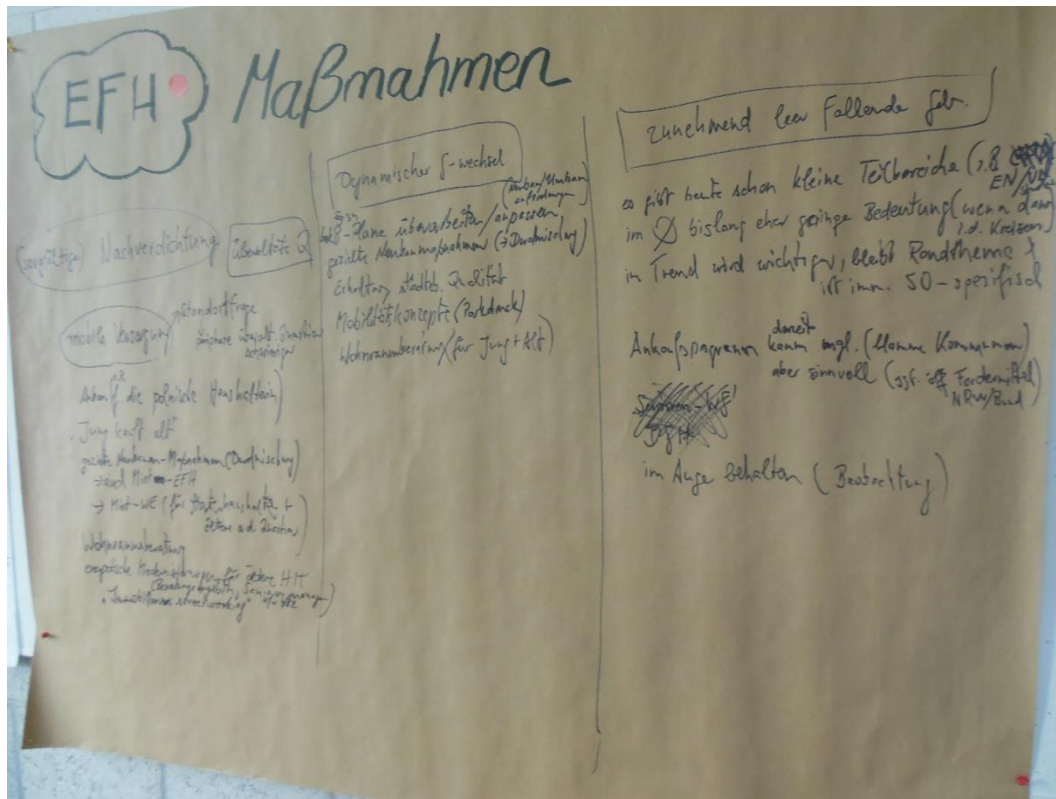 EFH
Maßnahmen
(sorgfältige) Nachverdichtung
überaltete Q
mobile Versorgung
Standortfrage
Ankauf
die polnische Haushälterin
"Jung kauft alt"
gezielte Neubauten-Maßnahmen (Durchmischung)
→ auch Miet-EFH
→ Miet-WE (für Starterhaushalte +
ältere a.d. Quartier)
Wohnraumberatung
energetische Modernisierungen für ältere HH
Dynamischer G-wechsel
(Neubau/Umbau
anforderungen
B-Pläne überarbeiten/anpassen
gezielte Neubaumaßnahmen (→ Durchmischung)
Erhaltung städtb. Qualität
Mobilitätskonzepte (Parkdruck)
Wohnraumberatung (für Jung + Alt)
zunehmend leer fallende Geb.
es gibt heute schon kleine Teilbereiche (z.B.
EN
im Ø bislang eher geringe Bedeutung (wenn dann
i.d. Kreisen)
im Trend wird wichtiger, bleibt Randthema &
ist imm. SO-spezifisch
Ankaufsprogramm derzeit kaum mögl. (klamme Kommunen)
aber sinnvoll (ggf. öff Fördermittel
NRW/Bund)
im Auge behalten (Beobachtung)